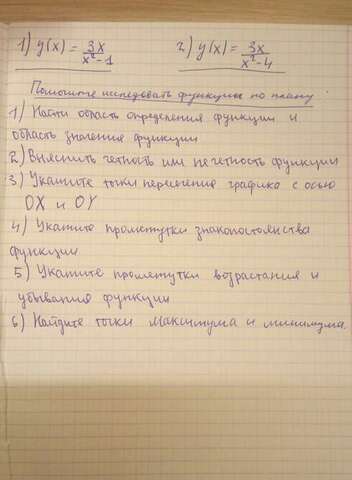 1) y(x) = 3x/(x²-1) 2) y(x) = 3x/(x²-4)
Помогите исследовать функцию по плану
1) Найти область определения функции и
область значения функции
2) Выяснить четность или нечетность функции
3) Укажите точки пересечения графика с осью
OX и OY
4) Укажите промежутки знакопостоянства
функции
5) Укажите промежутки возрастания и
убывания функции
6) Найдите точки максимума и минимума